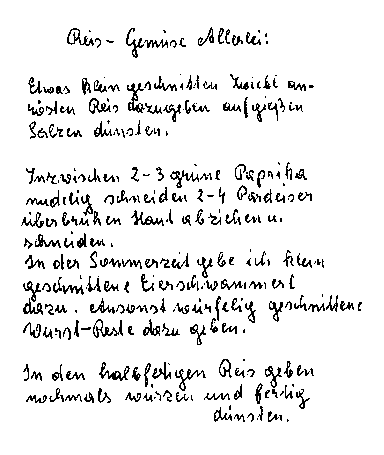 Reis-Gemüse Allerlei:
Etwas klein geschnitten Zwiebel an-
rösten Reis dazugeben aufgießen
Salzen dünsten.
Inzwischen 2-3 grüne Paprika
nudelig schneiden 2-4 Paradeiser
überbrühen Haut abziehen u.
schneiden.
In der Sommerzeit gebe ich klein
geschnittene Eierschwammerl
dazu. Ansonst würfelig geschnittene
Wurst-Reste dazu geben.
In den halbfertigen Reis geben
nochmals würzen und fertig
dünsten.